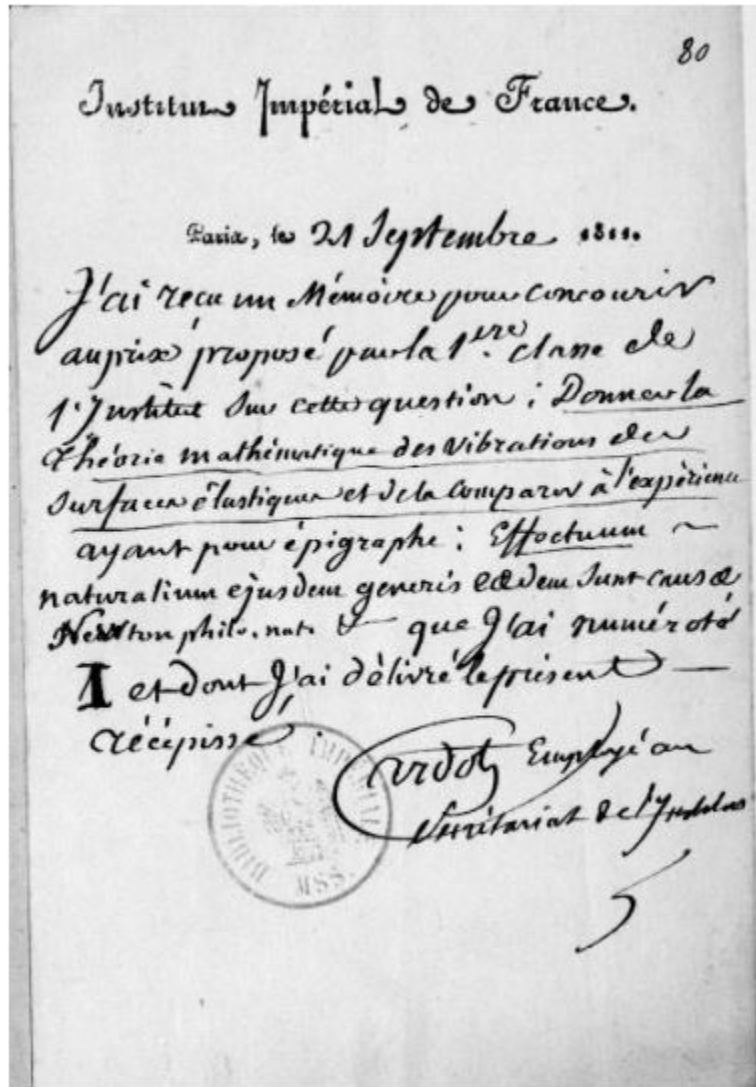 80
Institut Impérial de France.
Paris, le 21 Septembre 1811.
J'ai reçu un Mémoire pour concourir
au prix proposé par la 1.ere classe de
l'Institut sur cette question : Donner la
théorie mathématique des vibrations des
surfaces élastiques et de la comparer à l'expérience
ayant pour épigraphe : Effectuum
naturalium ejusdem generis eædem sunt causæ
Newton philo. nat. &c que J'ai numéroté
1 et dont J'ai délivré le présent
récépissé.
Employé au
Secrétariat de l'Institut
BIBLIOTHÈQUE IMPÉRIALE
MSS.